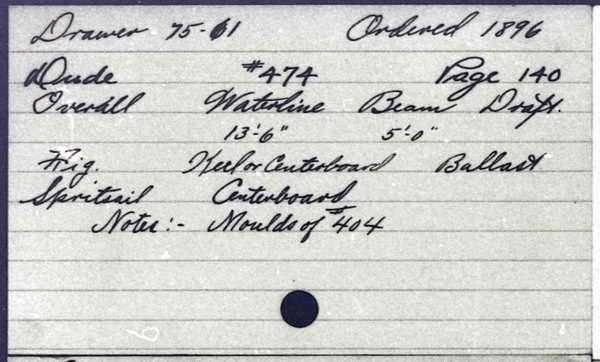 Drawer 75-61 Ordered 1896
Dude #474 Page 140
Overall Waterline Beam Draft.
13'-6" 5'-0"
Rig. Keel or Centerboard Ballast
Spritsail Centerboard
Notes:- Moulds of #404